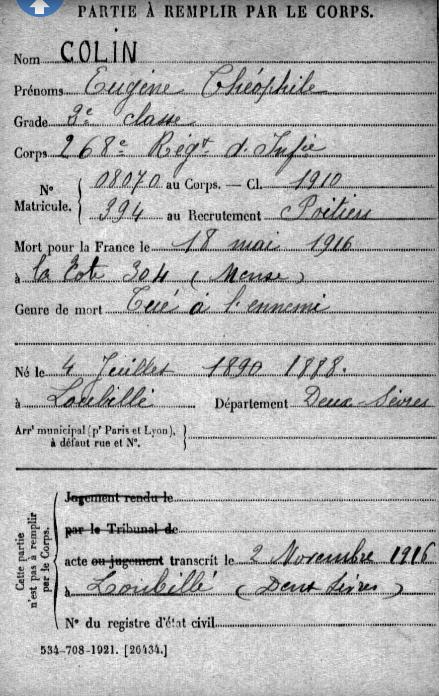 PARTIE À REMPLIR PAR LE CORPS.
Nom COLIN
Prénoms Eugène Théophile
Grade 2e classe
Corps 268e Régt d'Infie
N° Matricule. 08070 au Corps. — Cl. 1910
394 au Recrutement Poitiers
Mort pour la France le 18 mai 1916
à la Cote 304 (Meuse)
Genre de mort Tué à l'ennemi
Né le 4 Juillet 1890 1888.
à Loubillé Département Deux-Sèvres
Arrt municipal (pr Paris et Lyon),
à défaut rue et N°.
Cette partie n'est pas à remplir par le Corps.
Jugement rendu le
par le Tribunal de
acte ou jugement transcrit le 2 Novembre 1916
à Loubillé (Deux Sèvres)
N° du registre d'état civil
534-708-1921. [26434.]